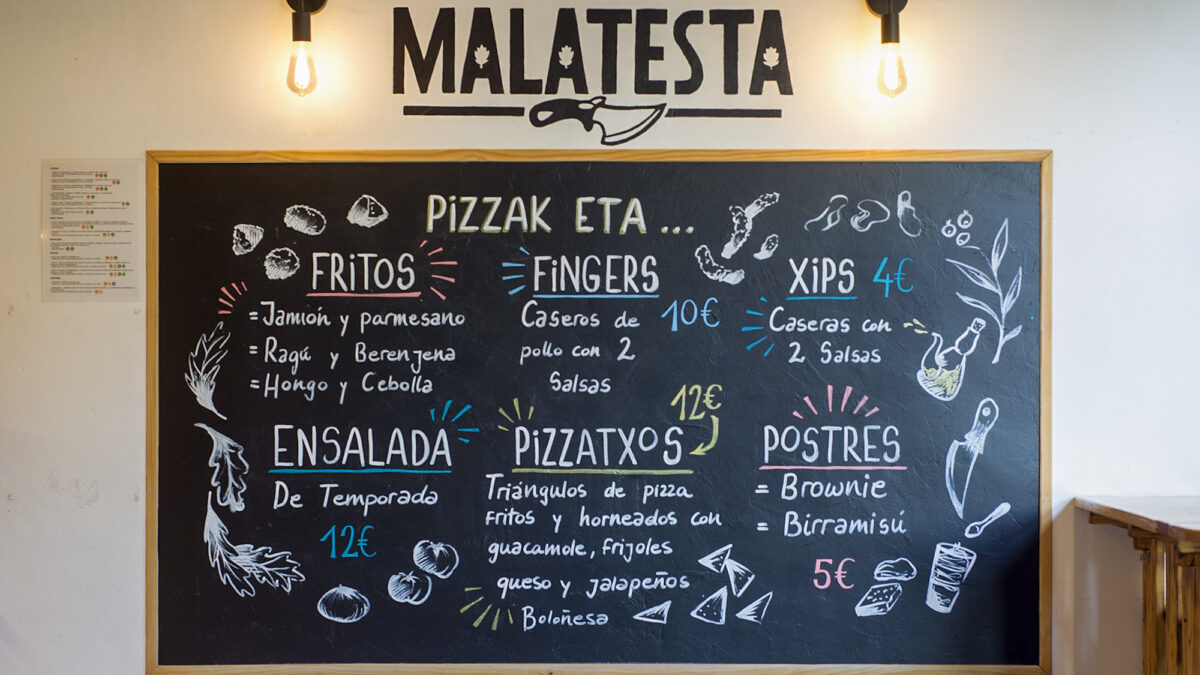 MALATESTA
PIZZAK ETA ...
FRITOS
= Jamión y parmesano
= Ragú y Berenjena
= Hongo y Cebolla
FINGERS
Caseros de 10€
pollo con 2
Salsas
XIPS 4€
Caseras con
2 Salsas
ENSALADA
De Temporada
12€
12€
PIZZATXOS
Triángulos de pizza
fritos y horneados con
guacamole, frijoles
queso y jalapeños
Boloñesa
POSTRES
= Brownie
= Birramisú
5€